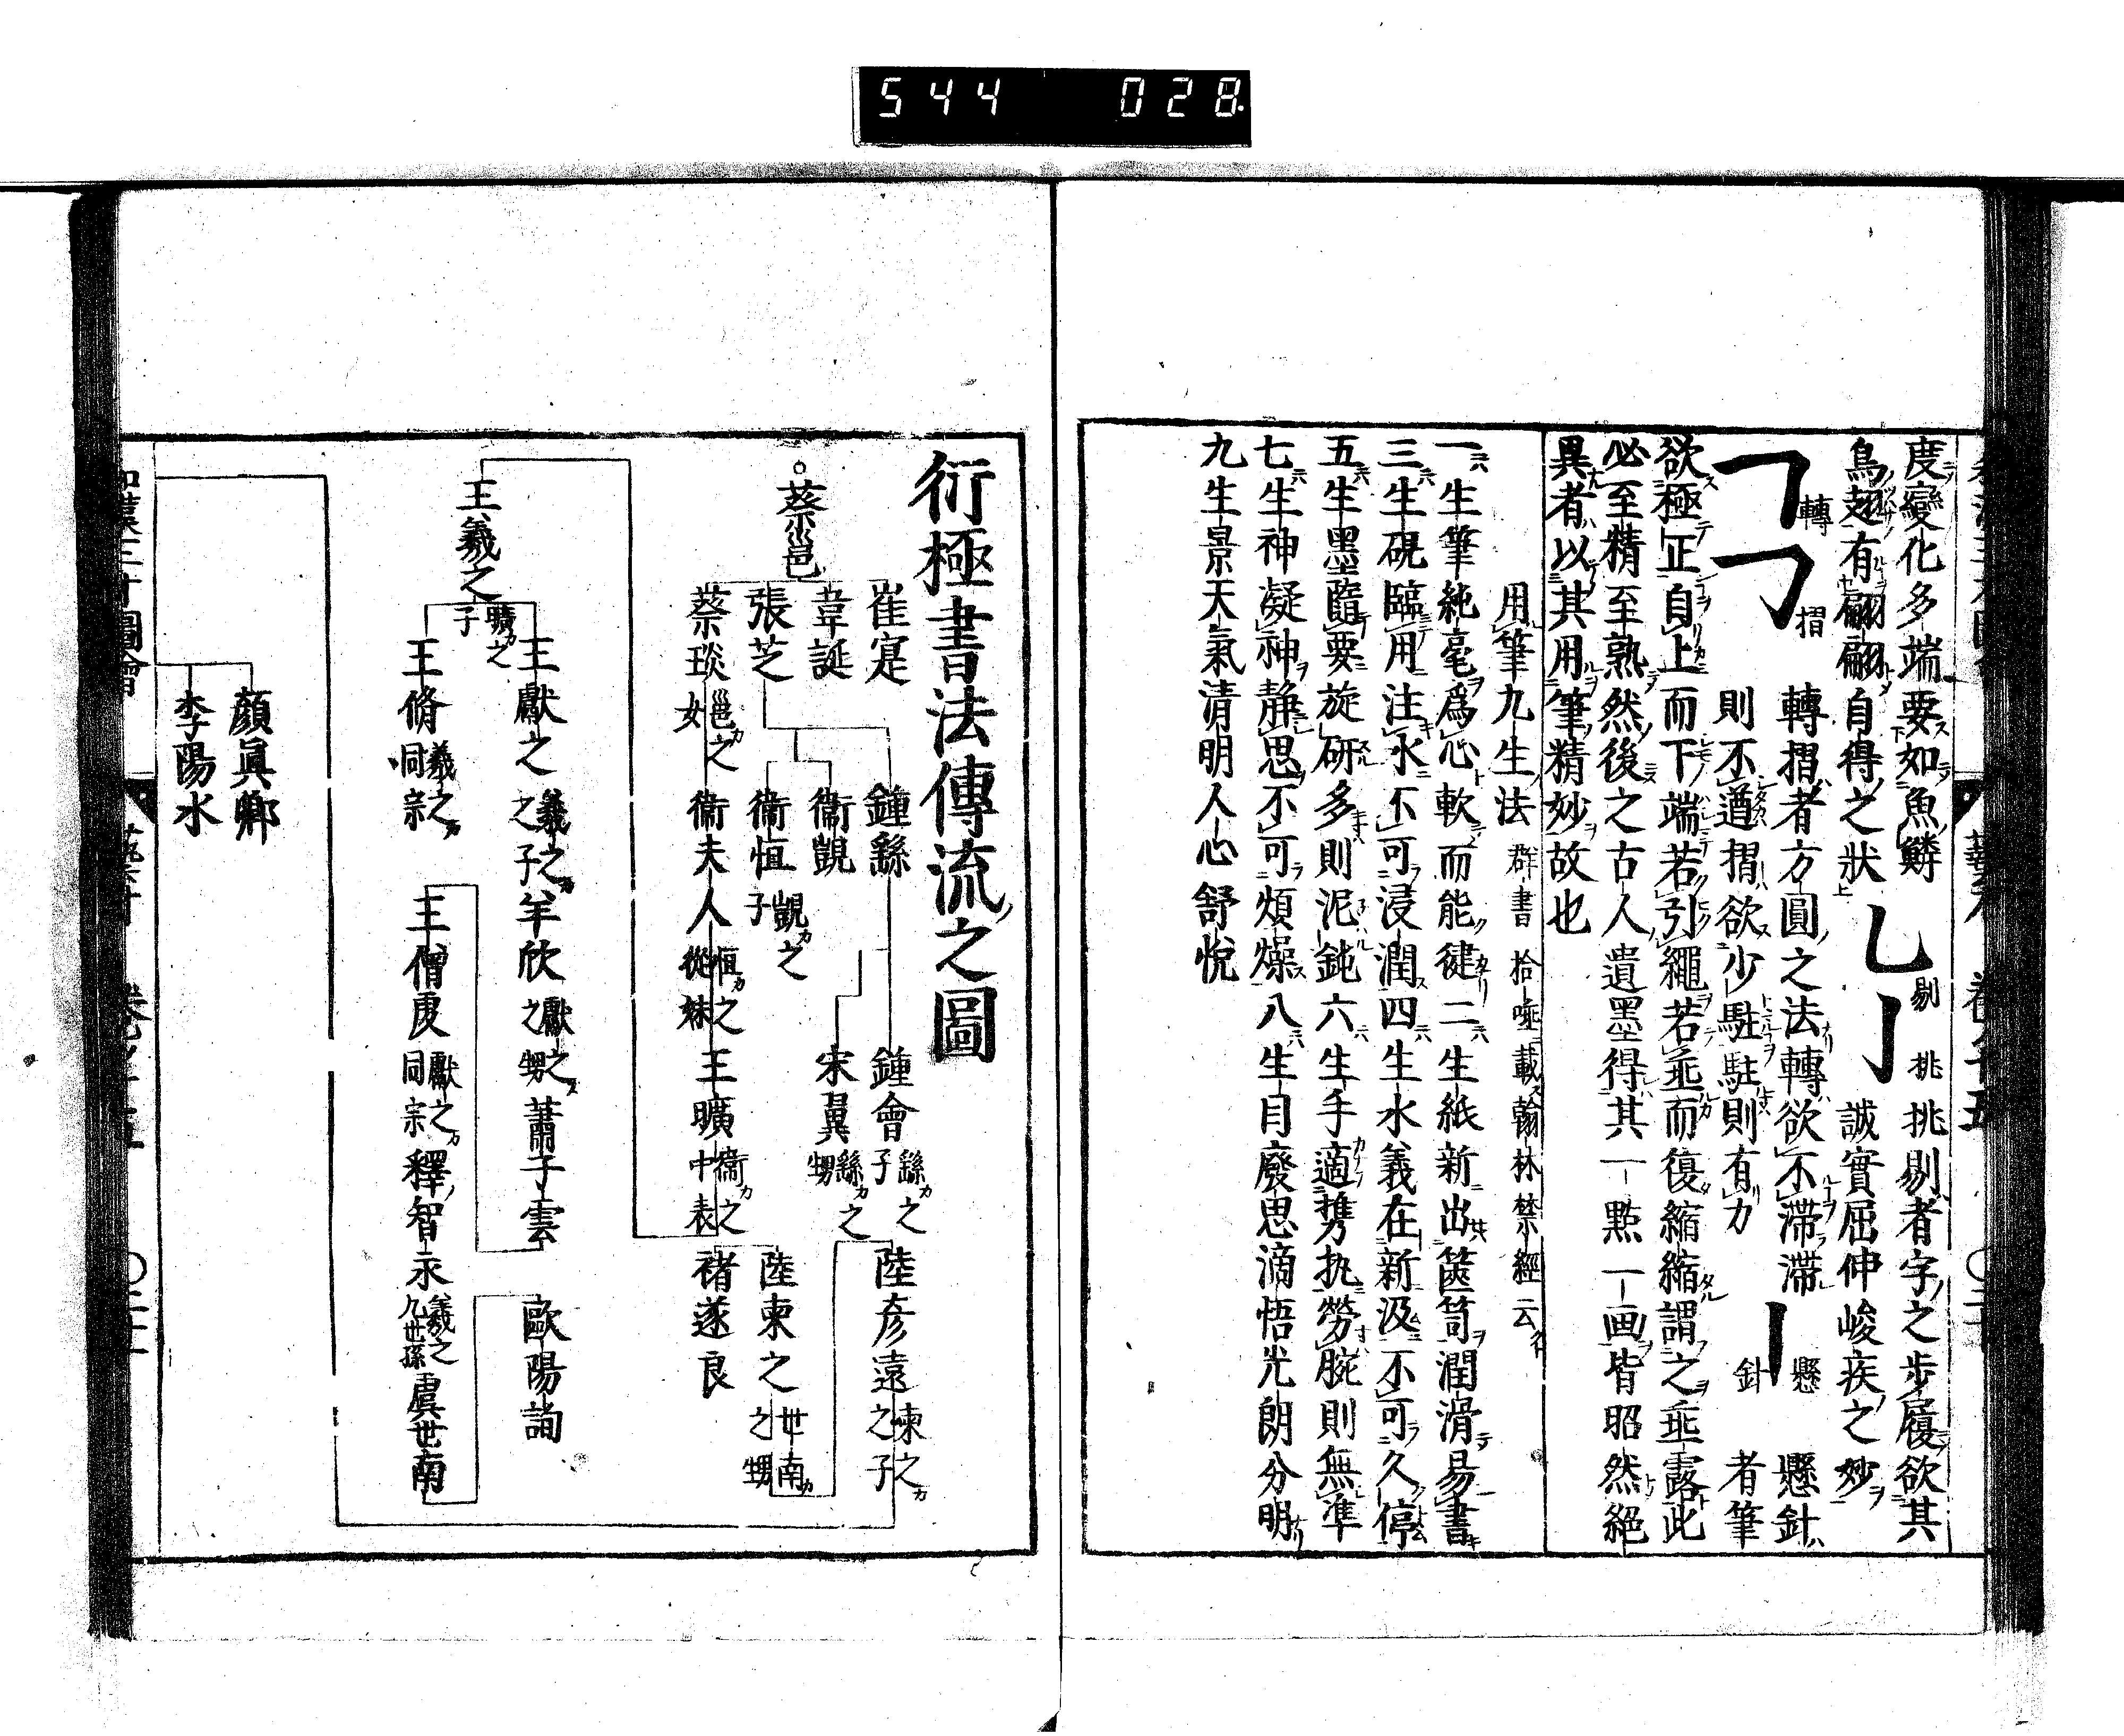 544 028
度變化多端要如魚鱗
鳥翅有翩翩自得之狀
剔
挑
挑剔者字之步履欲其
誠實屈伸峻疾之妙
轉
摺
轉摺者方圓之法轉欲不滯滯
則不遒摺欲少駐駐則有力
懸
針
懸針
者筆
欲極正自上而下端若引繩若垂而復縮縮謂之垂露此
必至精至熟然後之古人遺墨得其一點一画皆昭然絕
異者以其用筆精妙故也
用筆九生法 群書拾唾載翰林禁經云
一生筆純毫爲心軟而能健二生紙新出篋笥潤滑易書
三生硯臨用注水不可浸潤四生水義在新汲不可久停
五生墨隨要旋研多則泥鈍六生手適携执勞腕則無準
七生神凝神靜思不可煩燥八生目廢思滴悟光朗分明
九生景天氣清明人心舒悅
衍極書法傳流之圖
蔡邕
崔寔
韋誕
張芝
蔡琰 邕之女
鍾繇
衞覬
衞恒 覬之子
衞夫人 恒之從妹
鍾會 繇之子
宋翼 繇之甥
王曠 衞之中表
陸彦遠 柬之之子
陸柬之 世南之甥
褚遂良
王羲之 曠之子
王獻之 羲之之子
羊欣 獻之之甥
蕭子雲
歐陽詢
王脩 羲之同宗
王僧虔 獻之同宗
釋智永 羲之九世孫
虞世南
顔眞卿
李陽氷
和漢三才圖會 藝才 卷之十五